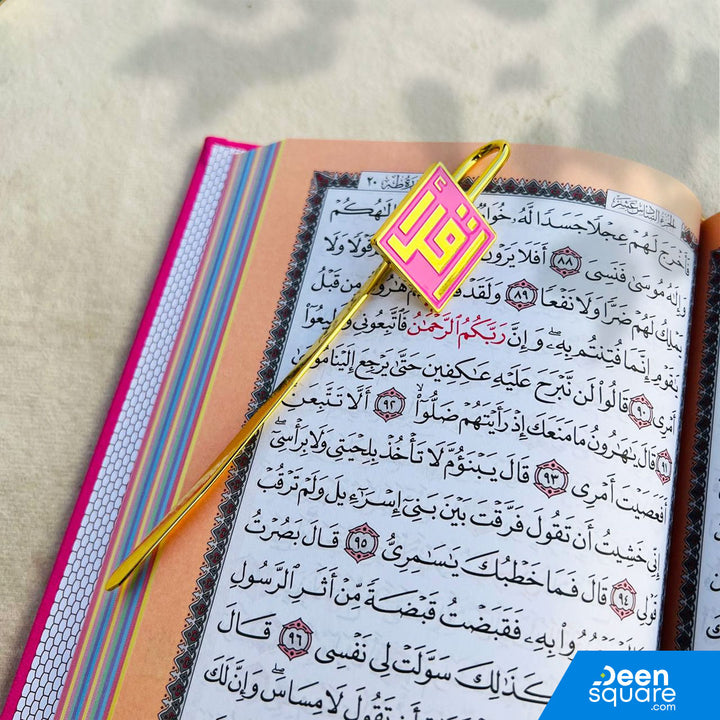 الجزء السادس عشر
٢٠
فأخرج لهم عجلا جسدا له خوار
وإله موسى فنسي ٨٨ أفلا يرون قولا ولا
يملك لهم ضرا ولا نفعا ٨٩ ولقد هارون من قبل
يقوم إنما فتنتم به وإن ربكم الرحمن فاتبعوني وأطيعوا
أمري ٩٠ قالوا لن نبرح عليه عكفين حتى يرجع إلينا موسى
٩١ قال يهرون ما منعك إذ رأيتهم ضلوا ٩٢ ألا تتبعن
أفعصيت أمري ٩٣ قال يبنؤم لا تأخذ بلحيتي ولا برأسي
إني خشيت أن تقول فرقت بين بني إسرءيل ولم ترقب
قولي ٩٤ قال فما خطبك يسمري ٩٥ قال بصرت
به فقبضت قبضة من أثر الرسول
وكذلك سولت لي نفسي ٩٦ قال
أن تقول لا مساس وإن لك
اقرأ
Deen
square
.com